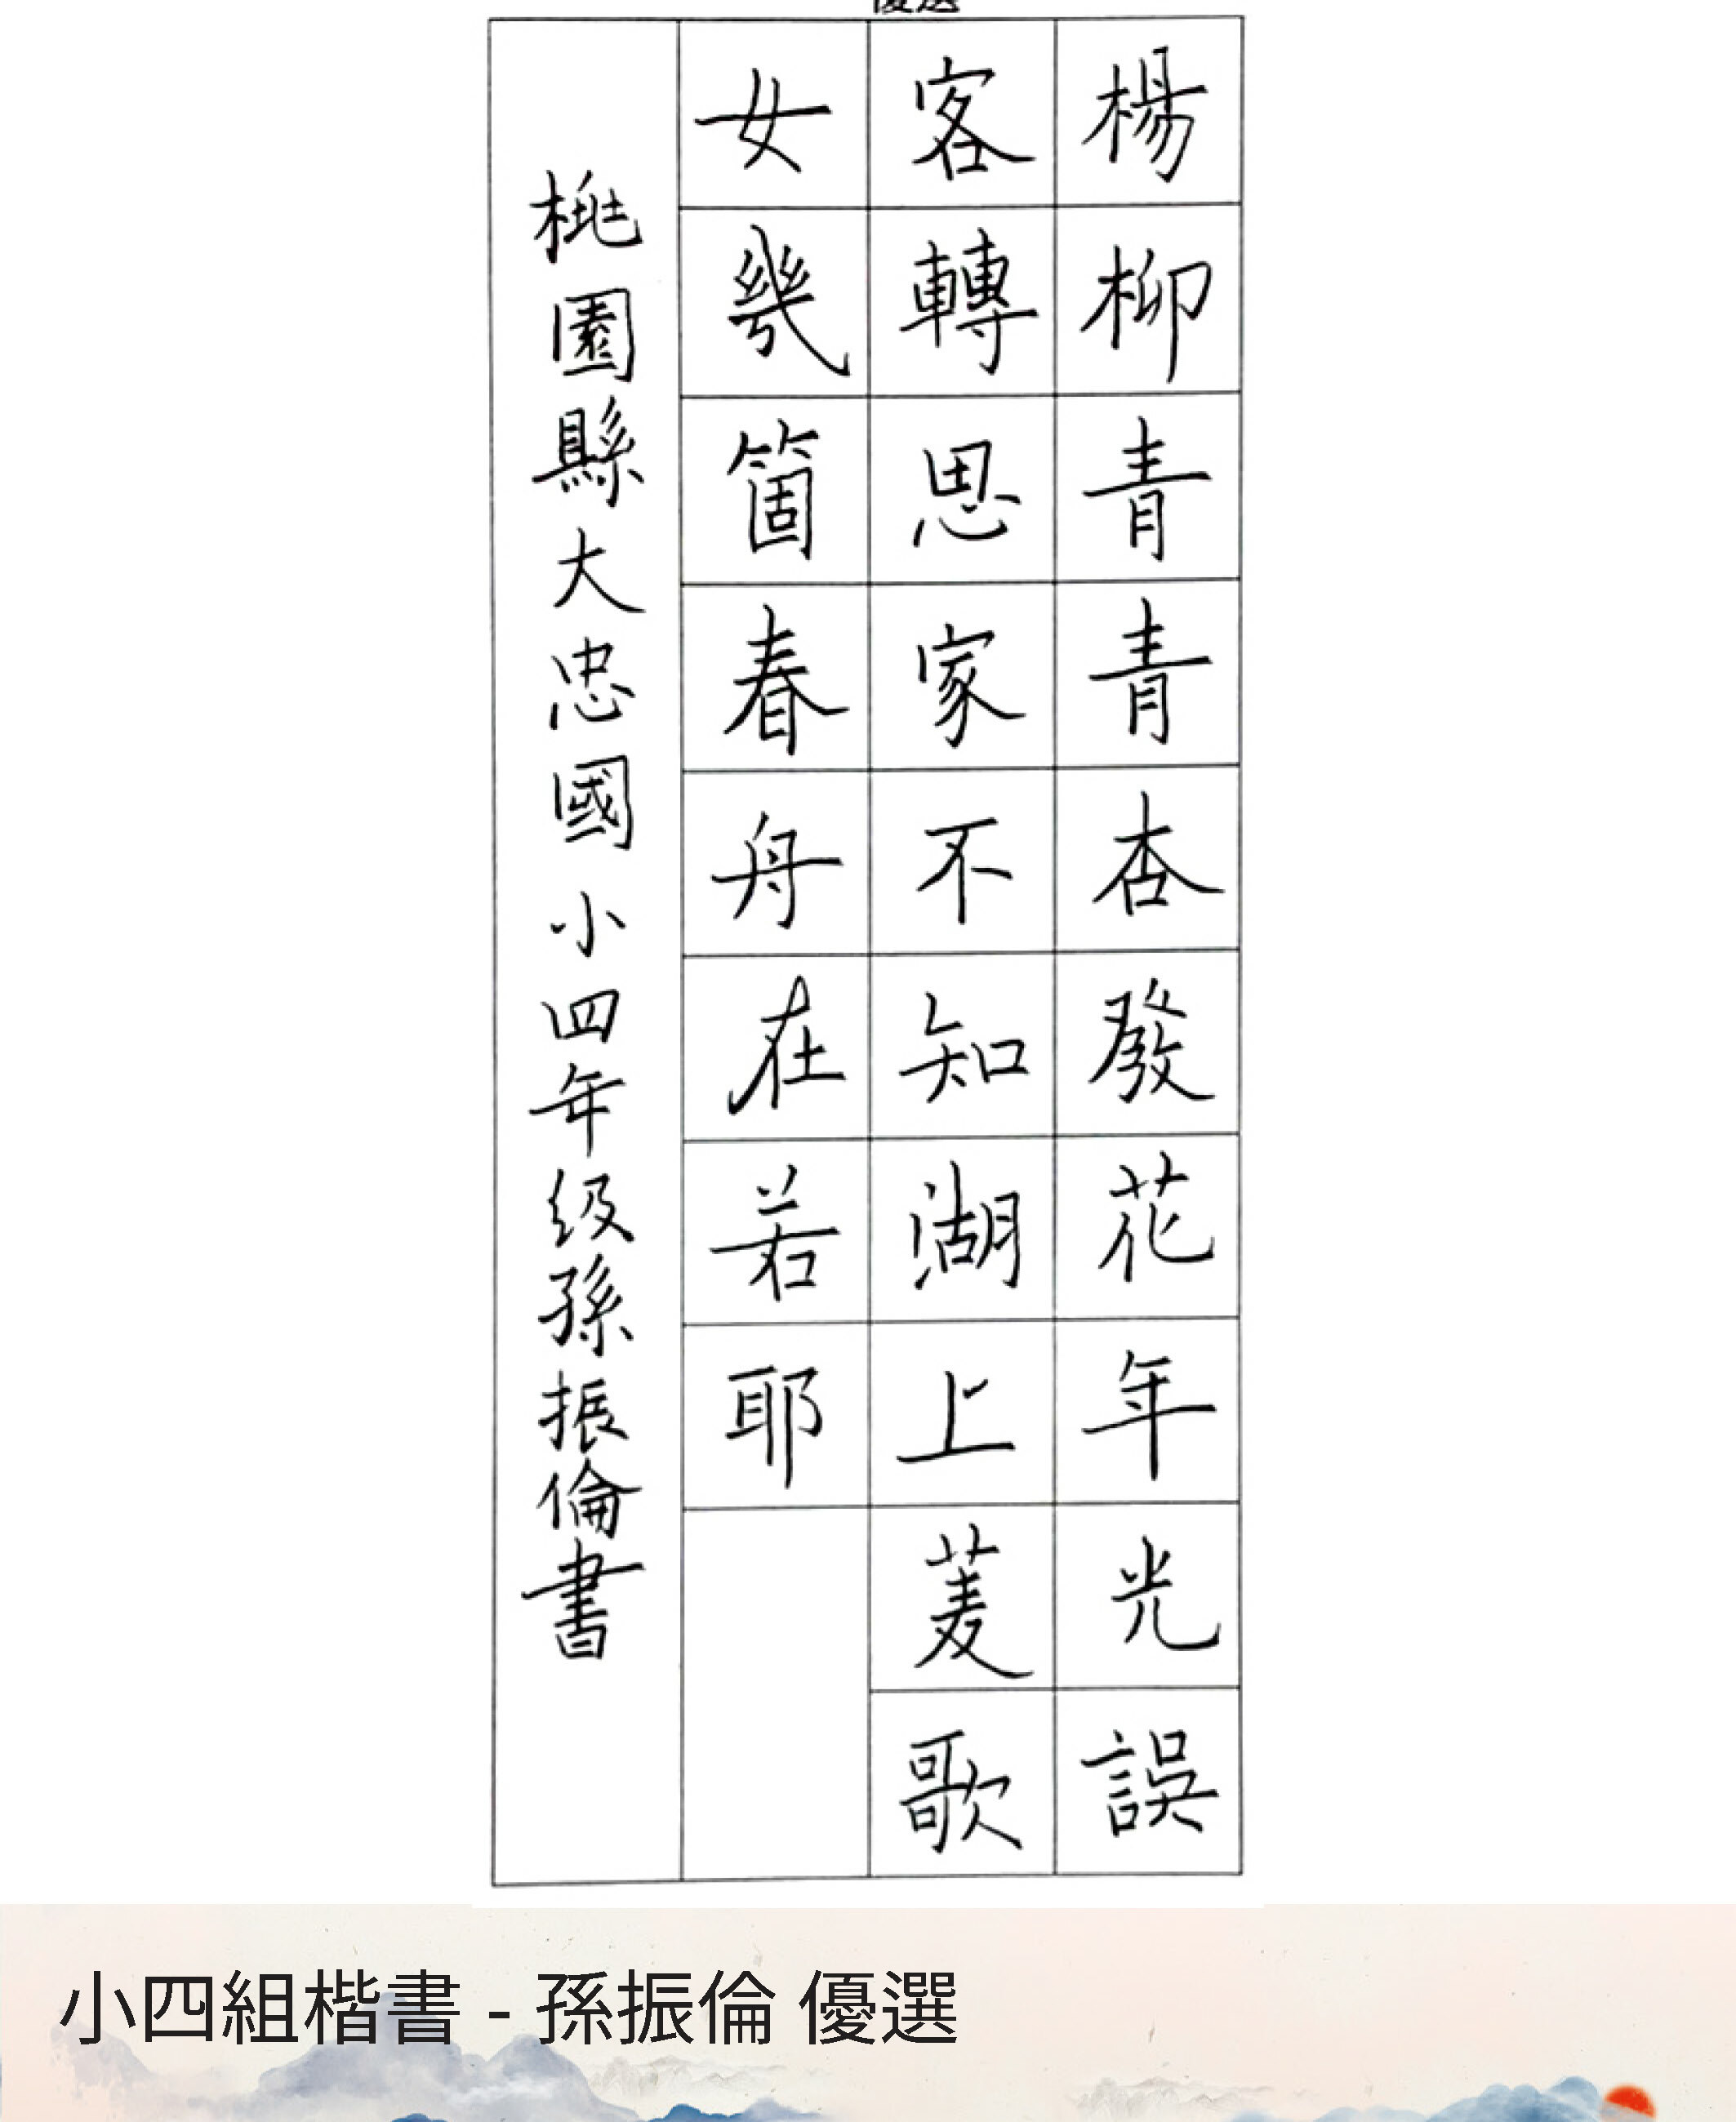 優選
楊柳青青杏發花年光誤
客轉思家不知湖上菱歌
女幾箇春舟在若耶
桃園縣大忠國小四年級孫振倫書
小四組楷書 - 孫振倫 優選